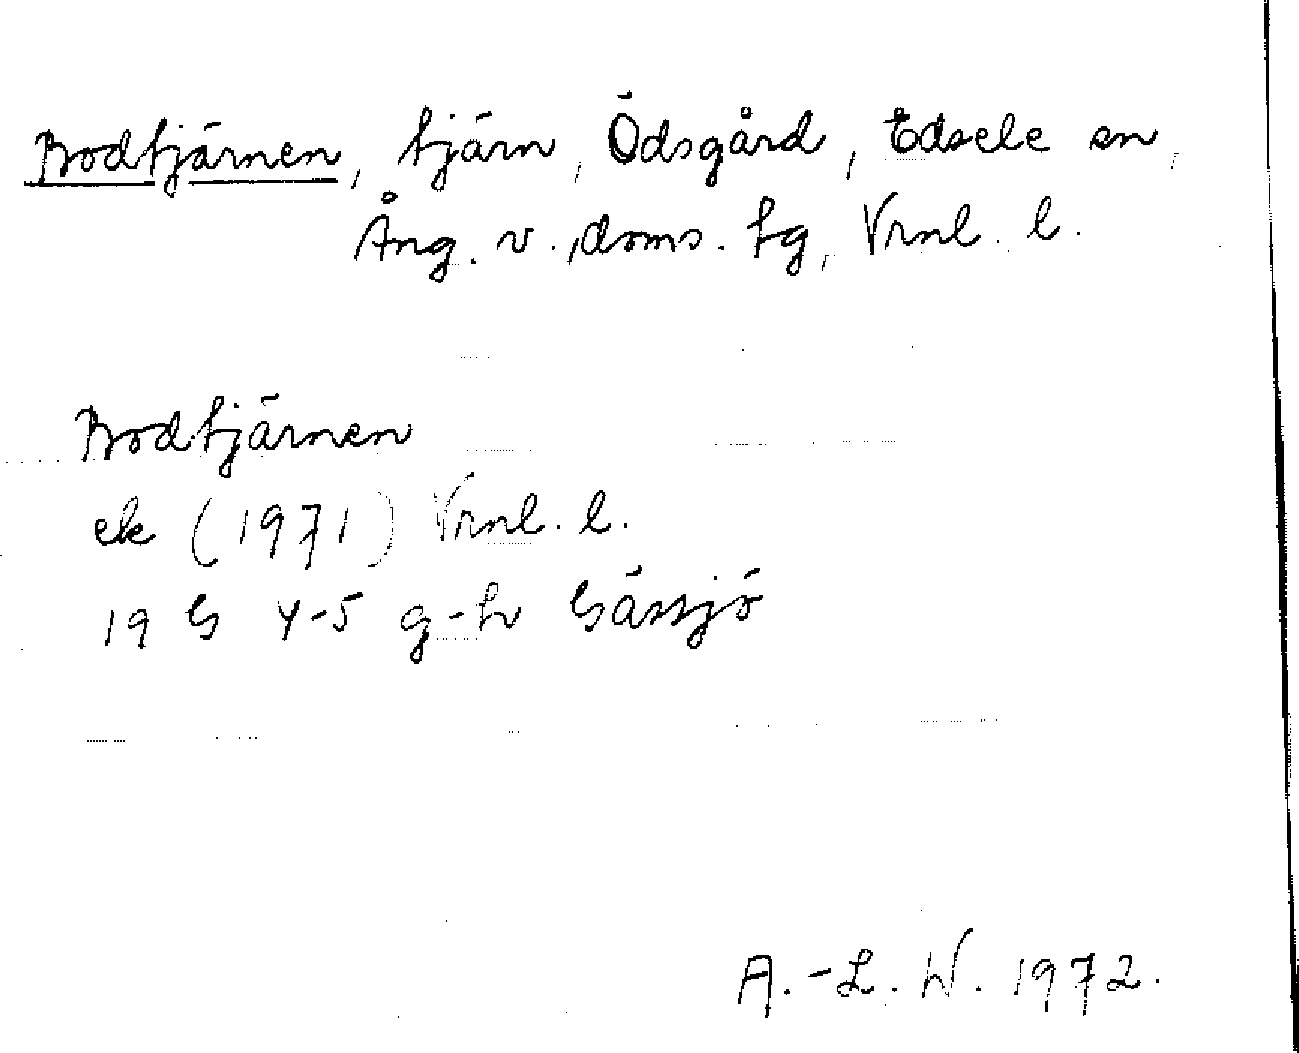 Bodtjärnen, tjärn, Ödsgård, Edsele sn,
Ång. v. doms. tg, Vrnl. l.
Bodtjärnen
ek (1971) Vrnl. l.
19 G 4-5 g-h Gässjö
A.-L. W. 1972.